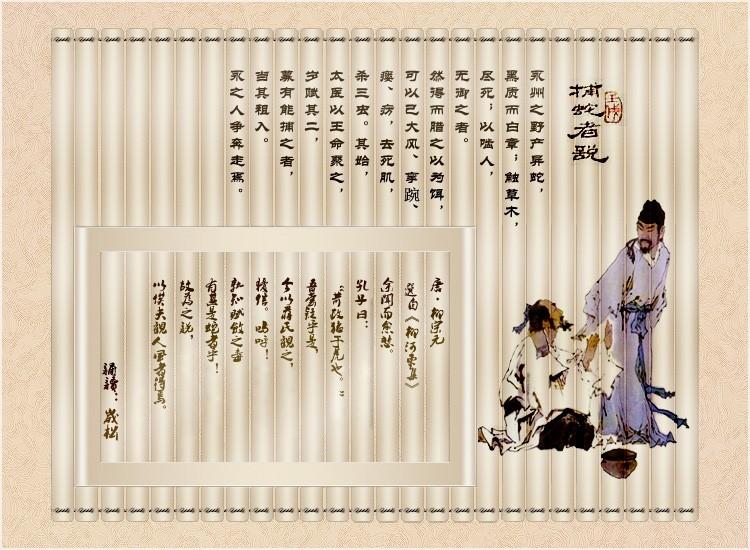 捕蛇者説
永州之野产异蛇，
黑质而白章；触草木，
尽死；以啮人，
无御之者。
然得而腊之以为饵，
可以已大风、挛踠、
瘘、疠，去死肌，
杀三虫。其始，
太医以王命聚之，
岁赋其二，
募有能捕之者，
当其租入。
永之人争奔走焉。
唐·柳宗元
选自《柳河东集》
余闻而愈悲。
孔子曰：
“苛政猛于虎也。”
吾尝疑乎是，
今以蒋氏观之，
犹信。呜呼！
孰知赋敛之毒
有甚是蛇者乎！
故为之说，
以俟夫观人风者得焉。
誦讀：